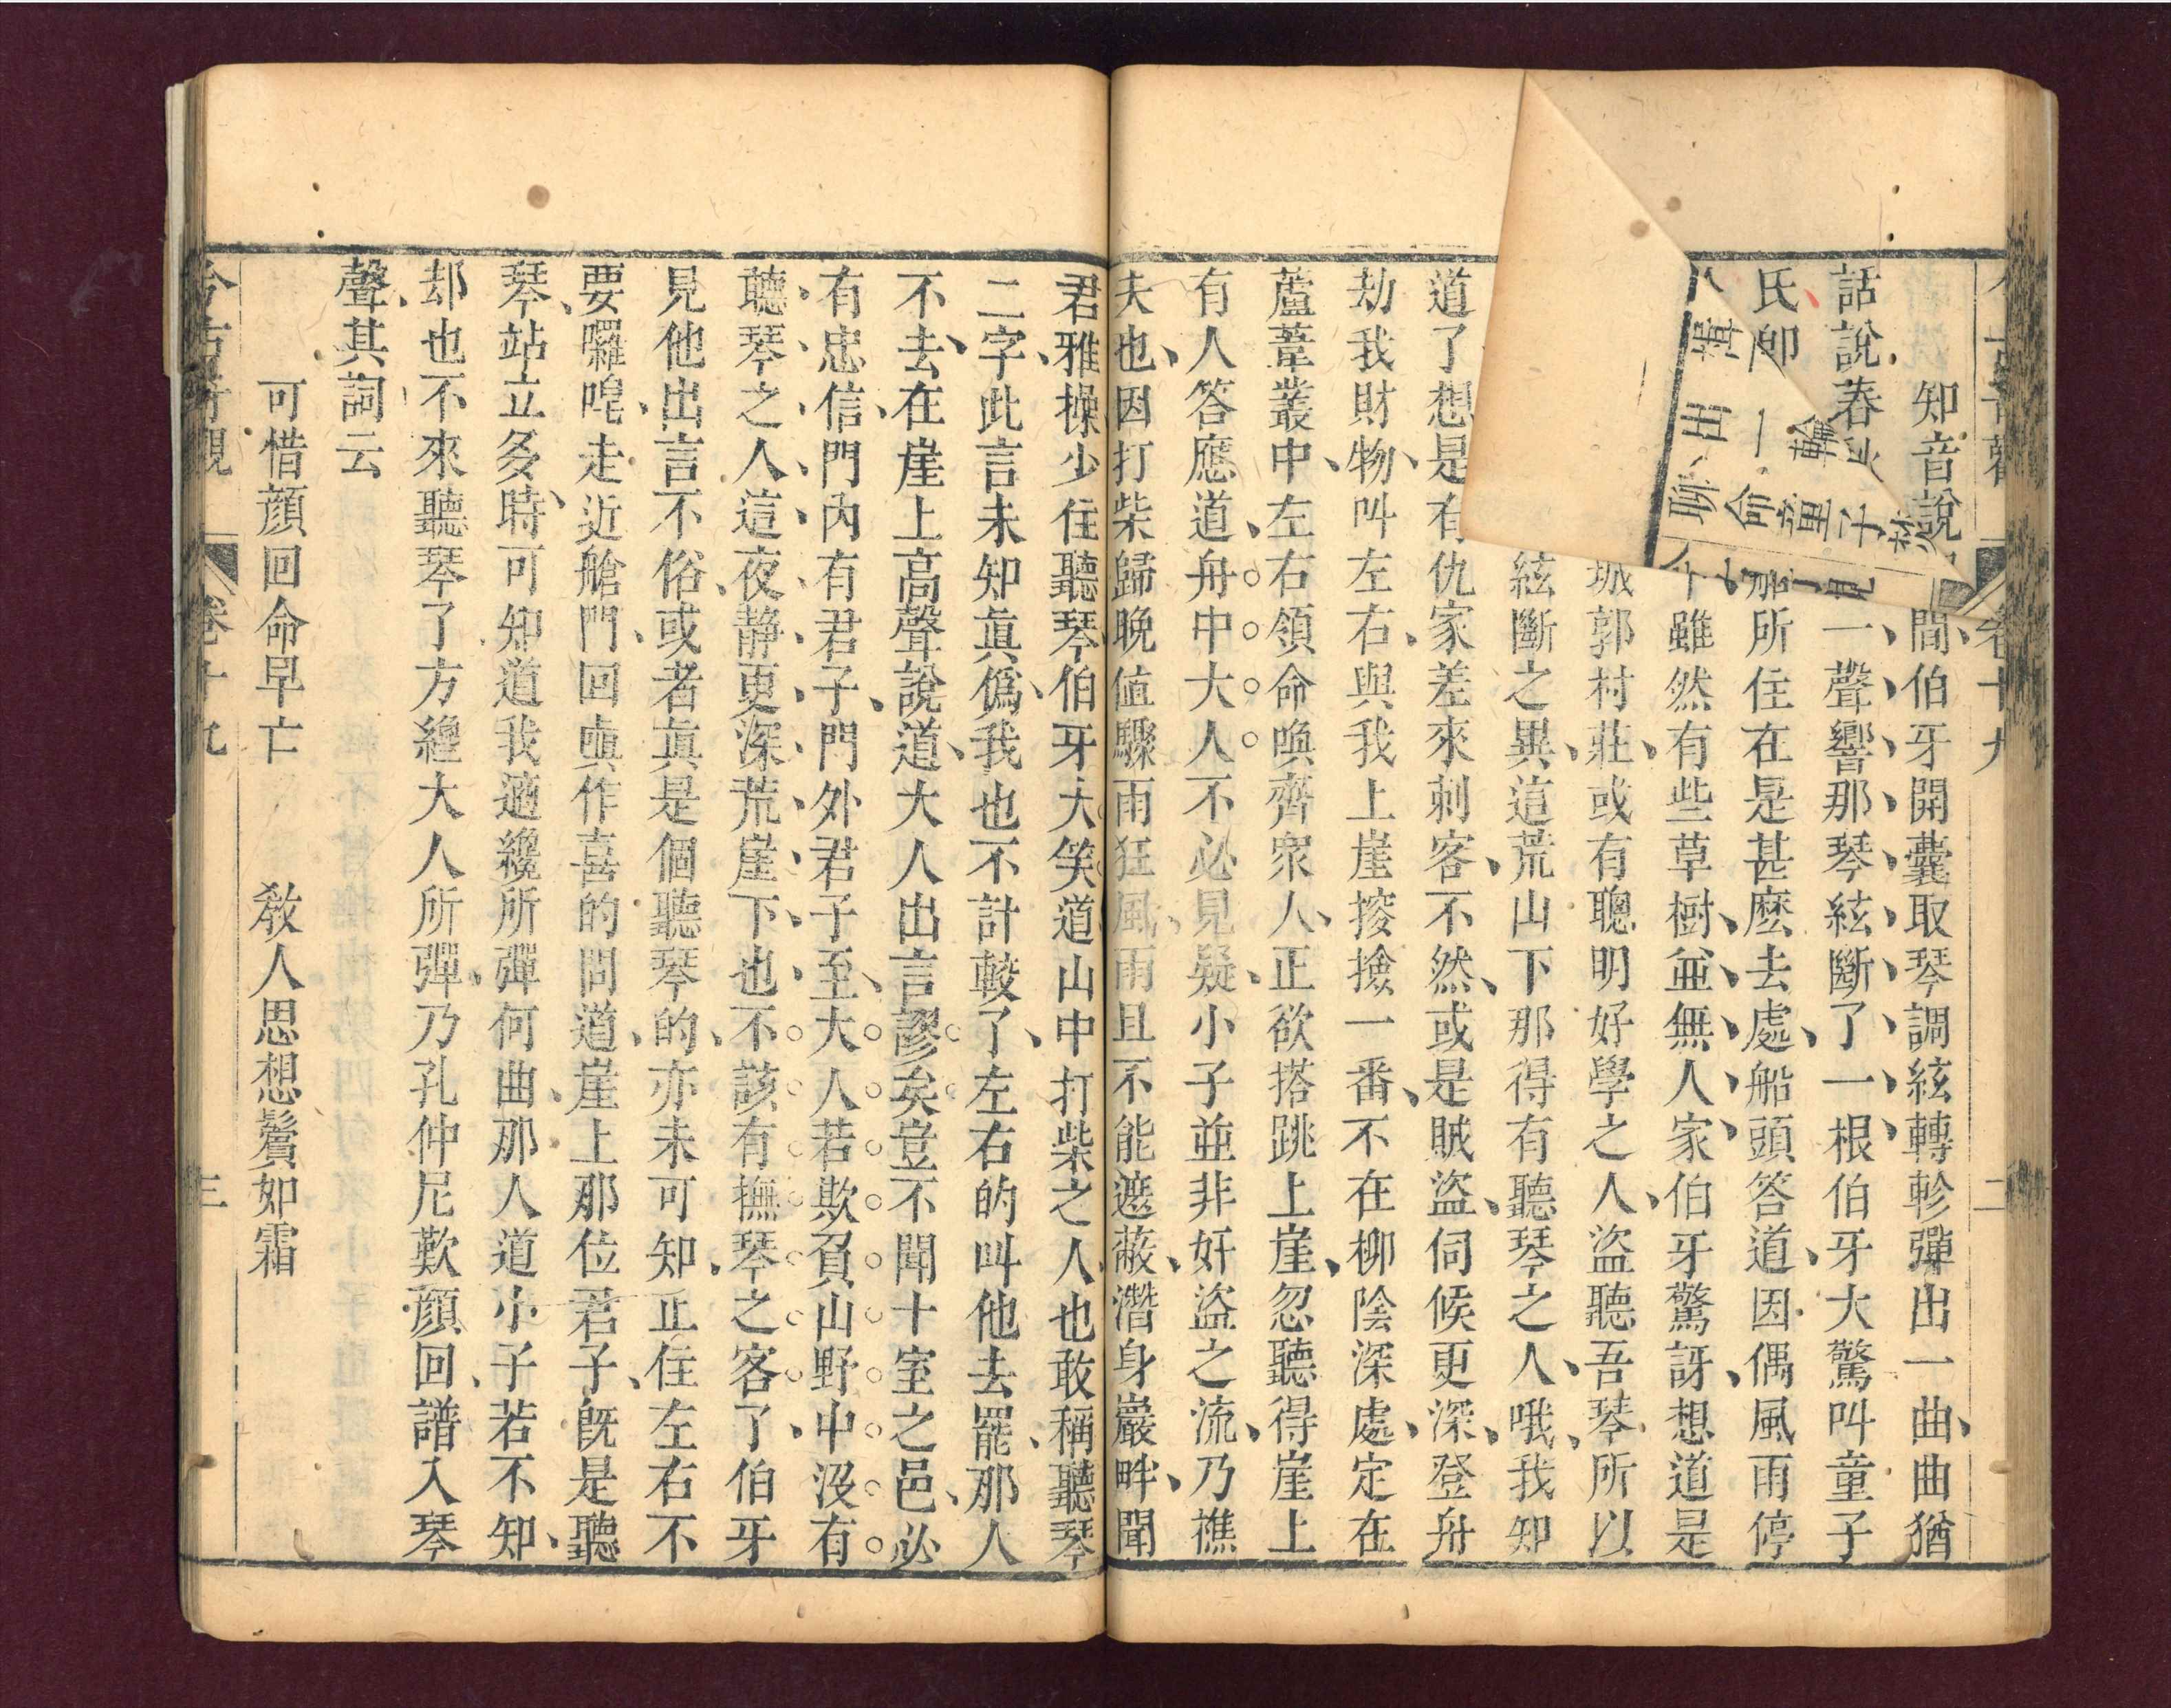 卷十九 二
知音說 間伯牙開囊取琴調絃轉軫彈出一曲曲猶
話說春秋 一聲響那琴絃斷了一根伯牙大驚叫童子
氏卽 船所住在是甚麽去處船頭答道因偶風雨停
雖然有些草樹並無人家伯牙驚訝想道是
城郭村莊或有聰明好學之人盜聽吾琴所以
絃斷之異這荒山下那得有聽琴之人哦我知
道了想是有仇家差來刺客不然或是賊盜伺候更深登舟
劫我財物叫左右與我上崖搜撿一番不在柳陰深處定在
蘆葦叢中左右領命喚齊衆人正欲搭跳上崖忽聽得崖上
有人答應道舟中大人不必見疑小子並非奸盜之流乃樵
夫也因打柴歸晚值驟雨狂風雨且不能遮蔽潛身巖畔聞
君雅操少住聽琴伯牙大笑道山中打柴之人也敢稱聽琴
二字此言未知眞僞我也不計較了左右的叫他去罷那人
不去在崖上高聲說道大人出言謬矣豈不聞十室之邑必
有忠信門內有君子門外君子至大人若欺負山野中沒有
聽琴之人這夜靜更深荒崖下也不該有撫琴之客了伯牙
見他出言不俗或者眞是個聽琴的亦未可知正住左右不
要囉唣走近艙門回嗔作喜的問道崖上那位君子旣是聽
琴站立多時可知道我適纔所彈何曲那人道小子若不知
却也不來聽琴了方纔大人所彈乃孔仲尼歎顏回譜入琴
聲其詞云
可惜顏回命早亡 教人思想鬢如霜
今古奇觀 卷十九 三